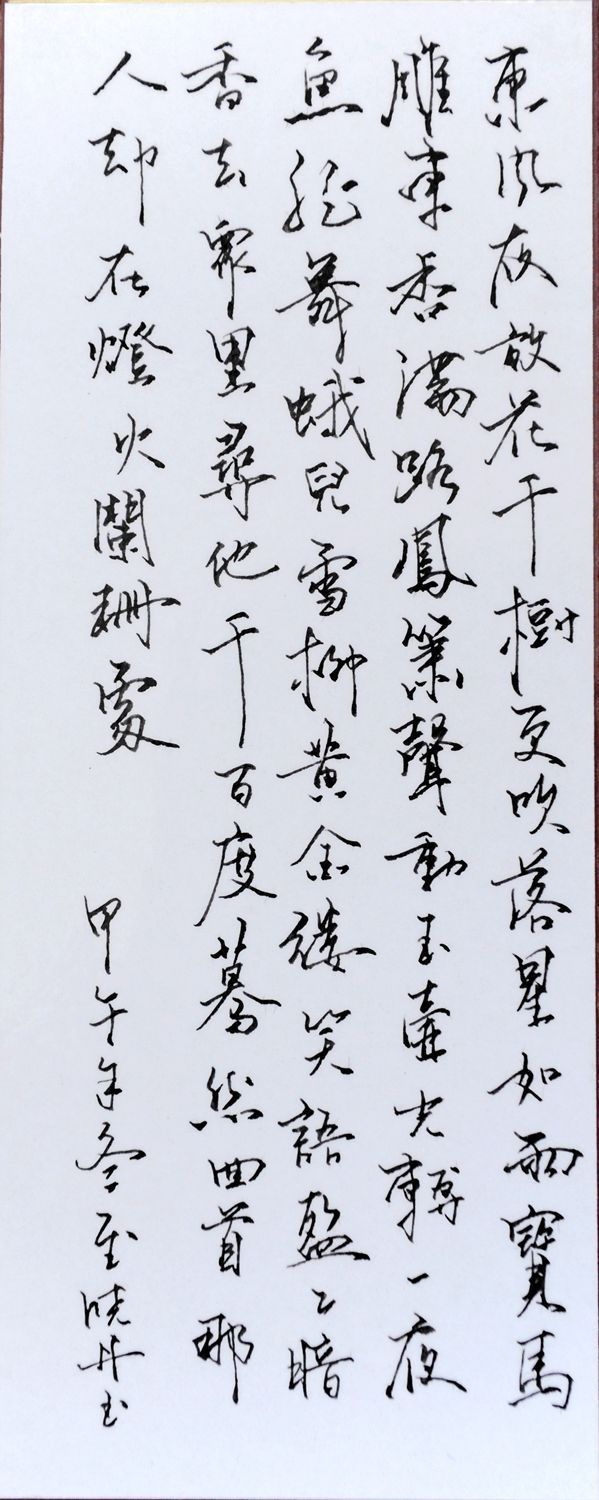 東風夜放花千樹更吹落星如雨寶馬
雕車香滿路鳳簫聲動玉壺光轉一夜
魚龍舞蛾兒雪柳黄金縷笑語盈々暗
香去眾里尋他千百度驀然回首那
人却在燈火闌珊處
甲午年冬至晓丹书